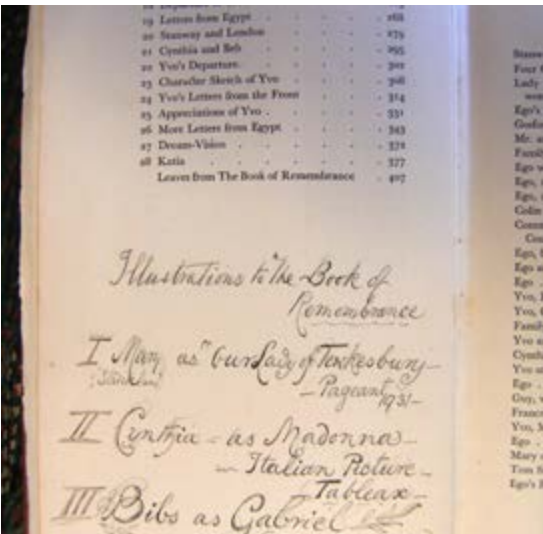 19 Letters from Egypt . . . . 268
20 Stanway and London . . . . 279
21 Cynthia and Beb . . . . 295
22 Yvo's Departure . . . . 302
23 Character Sketch of Yvo . . . 308
24 Yvo's Letters from the Front . . 314
25 Appreciations of Yvo . . . . 331
26 More Letters from Egypt . . . 343
27 Dream-Vision . . . . 372
28 Katia . . . . 377
Leaves from The Book of Remembrance . 407
Illustrations to "The Book of
Remembrance
I Mary as "Our Lady of Tewkesbury –
– Pageant 1931 –
II Cynthia – as Madonna –
– Italian Picture –
Tableax –
III Bibs as Gabriel
Four
Lady
Ego's
Mr.
Family
Ego
Ego,
Ego,
Colin
Ego,
Ego
Ego .
Yvo,
Yvo,
Family
Yvo
Cynth
Yvo
Ego .
Guy,
Franc
Yvo,
Ego .
Mary
Tom
Ego's